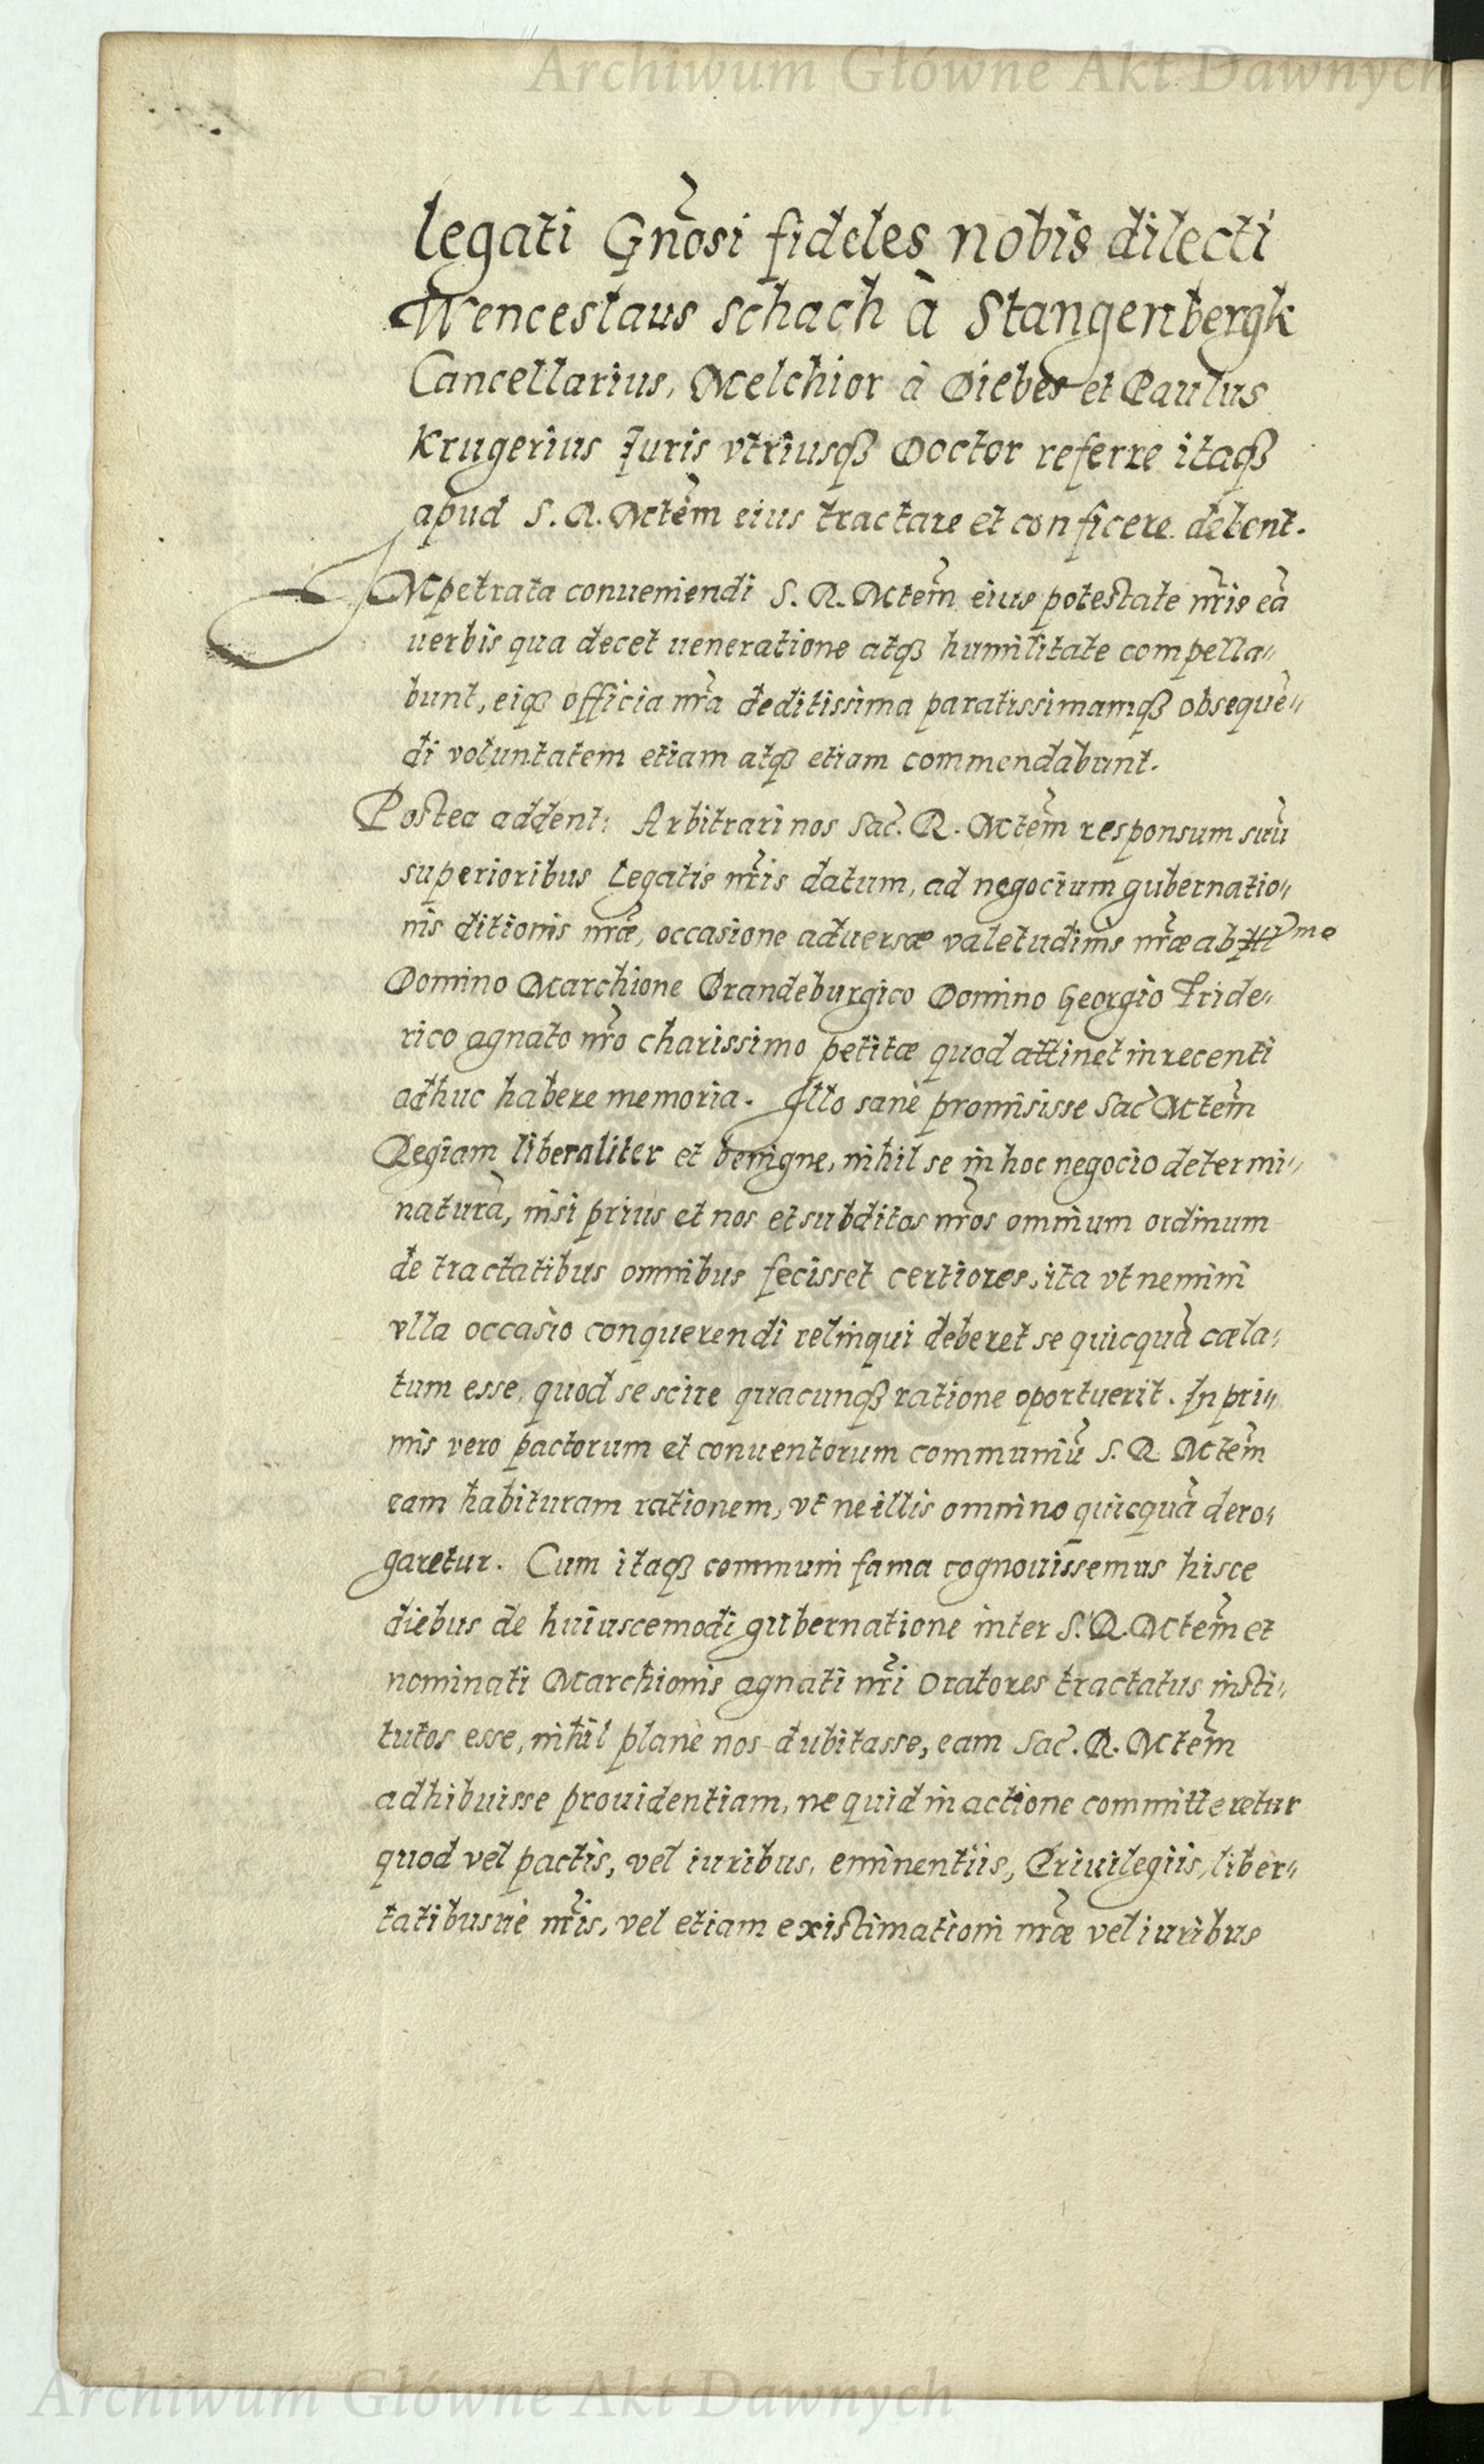 Archiwum Główne Akt Dawnych
legati Gn̄osi fideles nobis dilecti
Wenceslaus Schach à Stangenbergk
Cancellarius, Melchior à Diebes et Paulus
Krugerius Juris vtriusqȝ Doctor referre itaqȝ
apud S. R. Mtem̄ eius tractare et conficere debent.
IMpetrata conueniendi S. R. Mtem̄ eius potestate nr̄is eā
uerbis qua decet ueneratione atqȝ humilitate compella⸗
bunt, eiqȝ officia nr̄a deditissima paratissimamqȝ obsequē⸗
di voluntatem etiam atqȝ etiam commendabunt.
Postea addent: Arbitrari nos Sac̄. R. Mtem̄ responsum suū
superioribus legatis nr̄is datum, ad negocium gubernatio⸗
nis ditionis nr̄æ, occasione aduersæ valetudinis nr̄æ ab Ill̄mo
Domino Marchione Brandeburgico Domino Georgio Fride⸗
rico agnato nr̄o charissimo petitæ quod attinet in recenti
adhuc habere memoria. Illo sanè promisisse Sac̄ Mtem̄
Regiam liberaliter et benigne, nihil se in hoc negocio determi⸗
naturā, nisi prius et nos et subditos nr̄os omnium ordinum
de tractatibus omnibus fecisset certiores, ita vt nemini
vlla occasio conquerendi relinqui deberet se quicquā cæla⸗
tum esse, quod se scire quacunqȝ ratione oportuerit. In pri⸗
mis vero pactorum et conuentorum communiū S. R. Mtem̄
eam habituram rationem, vt ne illis omnino quicquā dero⸗
garetur. Cum itaqȝ communi fama cognouissemus hisce
diebus de huiuscemodi gubernatione inter S. R. Mtem̄ et
nominati Marchionis agnati nr̄i Oratores tractatus insti⸗
tutos esse, nihil planè nos dubitasse, eam Sac̄. R. Mtem̄
adhibuisse prouidentiam, ne quid in actione committeretur
quod vel pactis, vel iuribus, eminentiis, Priuilegiis, liber⸗
tatibusuè nr̄is, vel etiam existimationi nr̄æ vel iuribus
Archiwum Główne Akt Dawnych